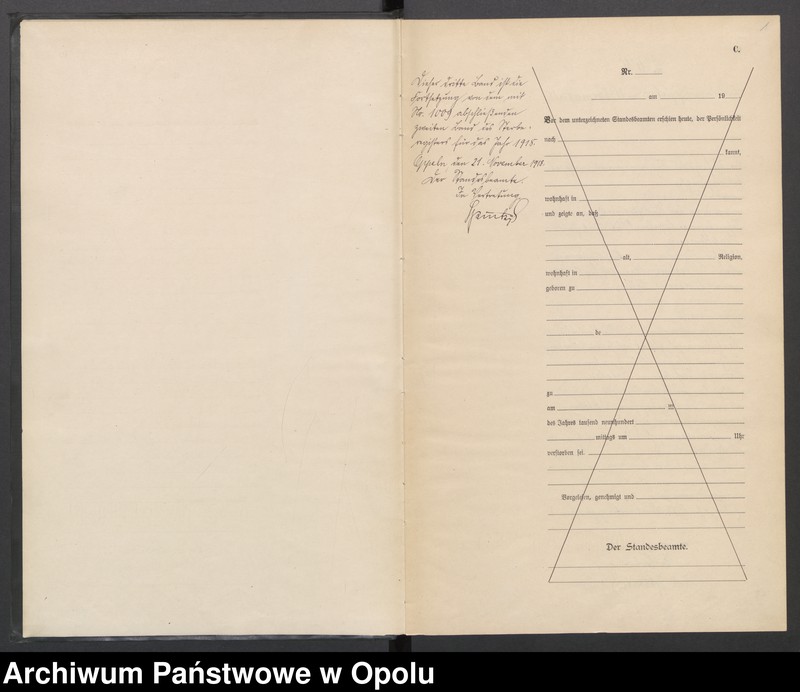 C.
Dieser dritte Band ist die
Fortsetzung von dem mit
Nr. 1009 abschließenden
zweiten Band des Sterbe-
registers für das Jahr 1918.
Oppeln den 21. November 1918.
Der Standesbeamte.
In Vertretung
Nr.
am 19
Vor dem unterzeichneten Standesbeamten erschien heute, der Persönlichkeit
nach
kannt,
wohnhaft in
und zeigte an, daß
alt, Religion,
wohnhaft in
geboren zu
be
zu
am
des Jahres tausend neunhundert
mittags um Uhr
verstorben sei.
Vorgelesen, genehmigt und
Der Standesbeamte.
Archiwum Państwowe w Opolu